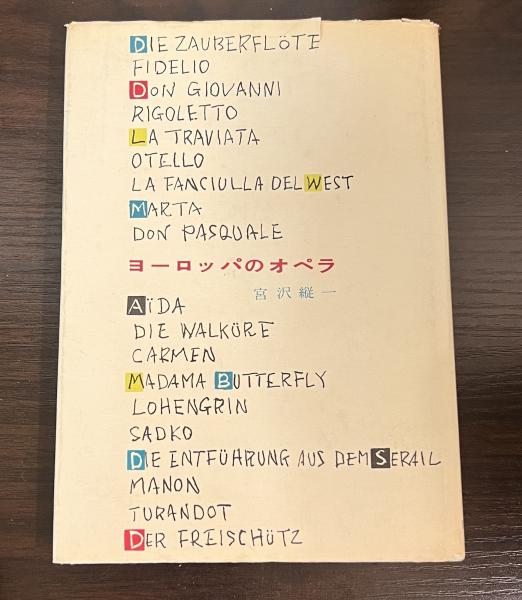 DIE ZAUBERFLÖTE
FIDELIO
DON GIOVANNI
RIGOLETTO
LA TRAVIATA
OTELLO
LA FANCIULLA DEL WEST
MARTA
DON PASQUALE
ヨーロッパのオペラ
宮沢縦一
AÏDA
DIE WALKÜRE
CARMEN
MADAMA BUTTERFLY
LOHENGRIN
SADKO
DIE ENTFÜHRUNG AUS DEM SERAIL
MANON
TURANDOT
DER FREISCHÜTZ